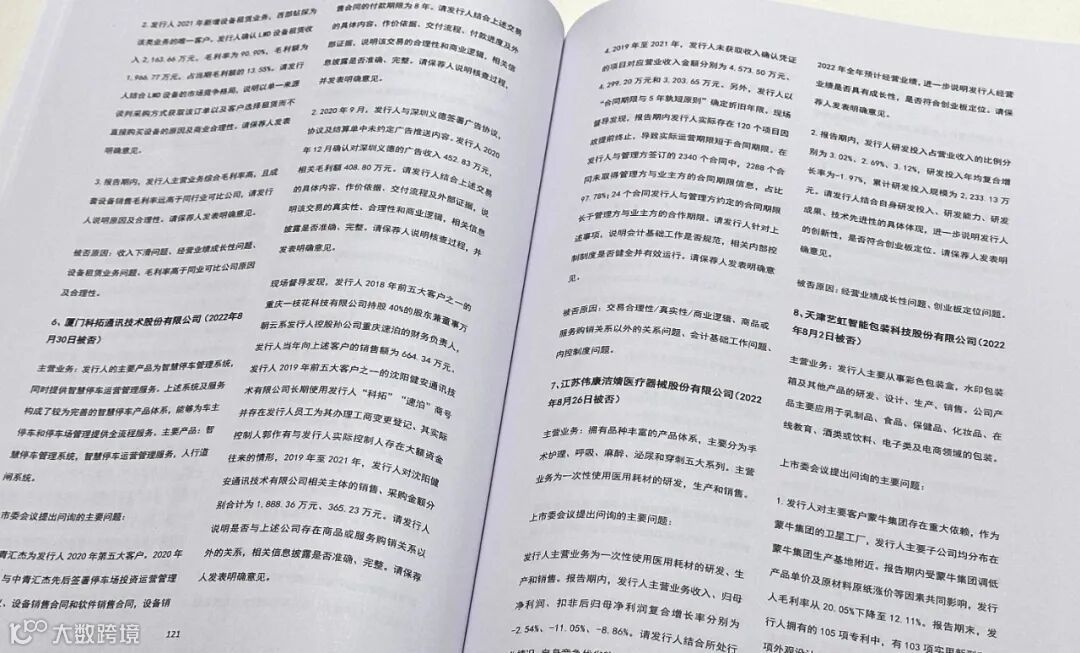 2. 发行人 2021 年新增设备租赁业务，西部钻探为
该类业务的唯一客户。发行人确认 LWD 设备租赁收
入 2,163.66 万元，毛利率为 90.90%，毛利额为
1,966.77 万元，占当期毛利额的 13.55%。请发行
人结合 LWD 设备的市场竞争格局，说明以单一来源
谈判采购方式获取该订单以及客户选择租赁而不
直接购买设备的原因及商业合理性。请保荐人发表
明确意见。
3. 报告期内，发行人主营业务综合毛利率高，且成
套设备销售毛利率远高于同行业可比公司，请发行
人说明原因及合理性。请保荐人发表明确意见。
被否原因：收入下滑问题、经营业绩成长性问题、
设备租赁业务问题、毛利率高于同业可比公司原因
及合理性。
6、厦门科拓通讯技术股份有限公司（2022年8
月30日被否）
主营业务：发行人的主要产品为智慧停车管理系统，
同时提供智慧停车运营管理服务。上述系统及服务
构成了较为完善的智慧停车产品体系，能够为车主
停车和停车场管理提供全流程服务，主要产品：智
慧停车管理系统，智慧停车运营管理服务，人行道
闸系统。
市委会议提出问询的主要问题：
青汇杰为发行人 2020 年第五大客户，2020 年
与中青汇杰先后签署停车场投资运营管理
、设备销售合同和软件销售合同，设备销
121
售合同的付款期限为 8 年。请发行人结合上述交易
的具体内容、作价依据、交付流程、付款进度及外
部证据，说明该交易的合理性和商业逻辑，相关信
息披露是否准确、完整。请保荐人说明核查过程，
并发表明确意见。
2. 2020 年 9 月，发行人与深圳义德签署广告协议，
协议及结算单中未约定广告推送内容。发行人 2020
年 12 月确认对深圳义德的广告收入 452.83 万元，
相关毛利额 408.80 万元。请发行人结合上述交易
的具体内容、作价依据、交付流程及外部证据，说
明该交易的真实性、合理性和商业逻辑，相关信息
披露是否准确、完整。请保荐人说明核查过程，并
发表明确意见。
现场督导发现，发行人 2018 年前五大客户之一的
重庆一枝花科技有限公司持股 40%的股东兼董事万
朝云系发行人控股孙公司重庆速泊的财务负责人，
发行人当年向上述客户的销售额为 664.34 万元，
发行人 2019 年前五大客户之一的沈阳健安通讯技
术有限公司长期使用发行人“科拓”“速泊”商号
并存在发行人员工为其办理工商变更登记，其实际
控制人郭作有与发行人实际控制人存在大额资金
往来的情形，2019 年至 2021 年，发行人对沈阳健
安通讯技术有限公司相关主体的销售、采购金额分
别合计为 1,888.36 万元、365.23 万元。请发行人
说明是否与上述公司存在商品或服务购销关系以
外的关系，相关信息披露是否准确、完整。请保荐
人发表明确意见。
4. 2019 年至 2021 年，发行人未获取收入确认凭证
的项目对应营业收入金额分别为 4,573.50 万元、
4,299.20 万元和 3,203.65 万元。另外，发行人以
“合同期限与 5 年孰短原则”确定折旧年限。现场
督导发现，报告期内发行人实际存在 120 个项目因
故提前终止，导致实际运营期限短于合同期限。在
发行人与管理方签订的 2340 个合同中，2288 个合
同未取得管理方与业主方的合同期限信息，占比
97.78%；24 个合同发行人与管理方约定的合同期限
长于管理方与业主方的合作期限。请发行人针对上
述事项，说明会计基础工作是否规范，相关内部控
制制度是否健全并有效运行。请保荐人发表明确意
见。
被否原因：交易合理性/真实性/商业逻辑、商品或
服务购销关系以外的关系问题、会计基础工作问题、
内控制度问题。
7、江苏伟康洁婧医疗器械股份有限公司（2022
年8月26日被否）
主营业务：拥有品种丰富的产品体系，主要分为手
术护理、呼吸、麻醉、泌尿和穿刺五大系列。主营
业务为一次性使用医用耗材的研发，生产和销售。
上市委会议提出问询的主要问题：
发行人主营业务为一次性使用医用耗材的研发、生
产和销售。报告期内，发行人主营业务收入、归母
净利润、扣非后归母净利润复合增长率分别为
-2.54%、-11.05%、-8.86%。请发行人结合所处行
2022 年全年预计经营业绩，进一步说明发行人经营
业绩是否具有成长性，是否符合创业板定位。请保
荐人发表明确意见。
2. 报告期内，发行人研发投入占营业收入的比例分
别为 3.02%、2.69%、3.12%，研发投入年均复合增
长率为-1.97%，累计研发投入规模为 2,233.13 万
元。请发行人结合自身研发投入、研发能力、研发
成果、技术先进性的具体体现，进一步说明发行人
的创新性，是否符合创业板定位。请保荐人发表明
确意见。
被否原因：经营业绩成长性问题、创业板定位问题。
8、天津艺虹智能包装科技股份有限公司（2022
年8月2日被否）
主营业务：发行人主要从事彩色包装盒，水印包装
箱及其他产品的研发、设计、生产、销售。公司产
品主要应用于乳制品、食品、保健品、化妆品、在
线教育、酒类或饮料、电子类及电商领域的包装。
上市委会议提出问询的主要问题：
1. 发行人对主要客户蒙牛集团存在重大依赖，作为
蒙牛集团的卫星工厂，发行人主要子公司均分布在
蒙牛集团生产基地附近。报告期内受蒙牛集团调低
产品单价及原材料原纸涨价等因素共同影响，发行
人毛利率从 20.05%下降至 12.11%。报告期末，发
行人拥有的 105 项专利中，有 103 项实用新型
项外观设
大数跨境